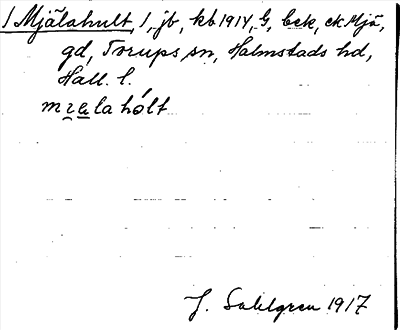 1 Mjälahult, 1, jb, kb 1914, G, bck, ck Mjä,
gd, Torups sn, Halmstads hd,
Hall. l.
hólt
J. Sahlgren 1917